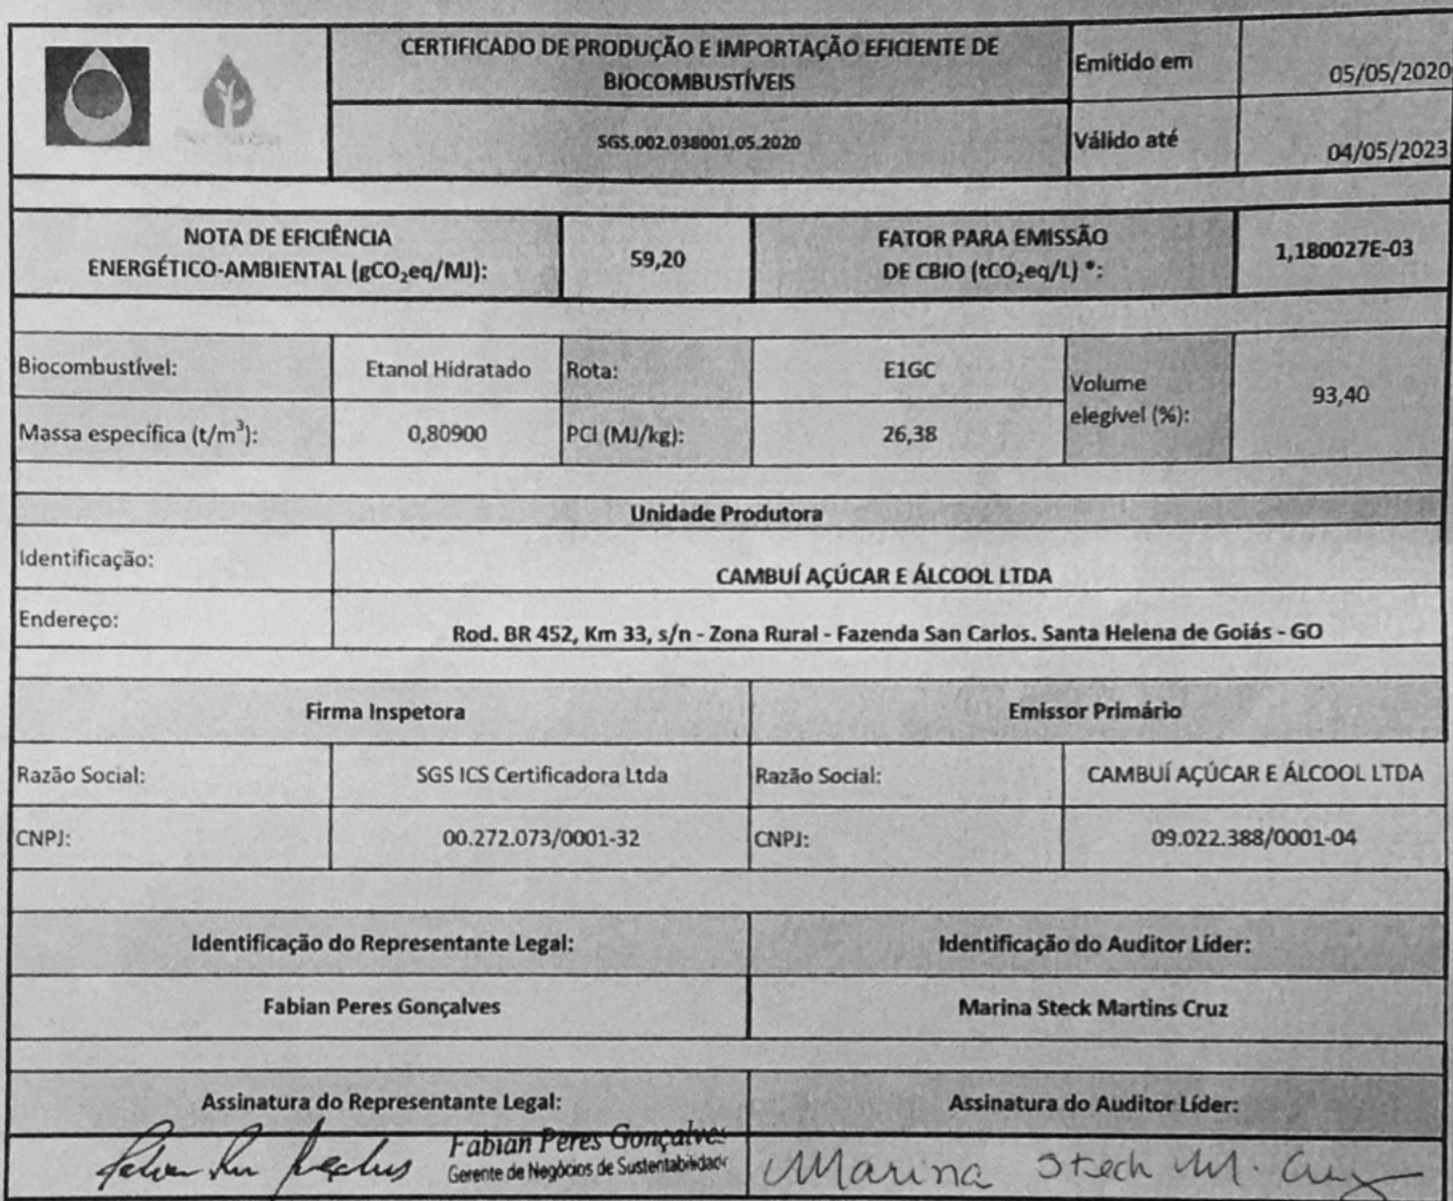 CERTIFICADO DE PRODUÇÃO E IMPORTAÇÃO EFICIENTE DE
BIOCOMBUSTÍVEIS
Emitido em
05/05/2020
SGS.002.038001.05.2020
Válido até
04/05/2023
NOTA DE EFICIÊNCIA
ENERGÉTICO-AMBIENTAL (gCO₂eq/MJ):
59,20
FATOR PARA EMISSÃO
DE CBIO (tCO₂eq/L) *:
1,180027E-03
Biocombustível:
Etanol Hidratado
Rota:
E1GC
Volume
elegível (%):
93,40
Massa específica (t/m³):
0,80900
PCI (MJ/kg):
26,38
Unidade Produtora
Identificação:
CAMBUÍ AÇÚCAR E ÁLCOOL LTDA
Endereço:
Rod. BR 452, Km 33, s/n - Zona Rural - Fazenda San Carlos. Santa Helena de Goiás - GO
Firma Inspetora
Emissor Primário
Razão Social:
SGS ICS Certificadora Ltda
Razão Social:
CAMBUÍ AÇÚCAR E ÁLCOOL LTDA
CNPJ:
00.272.073/0001-32
CNPJ:
09.022.388/0001-04
Identificação do Representante Legal:
Identificação do Auditor Líder:
Fabian Peres Gonçalves
Marina Steck Martins Cruz
Assinatura do Representante Legal:
Assinatura do Auditor Líder:
Fabian Peres Gonçalves
Gerente de Negócios de Sustentabilidade
Marina Steck M. Cruz